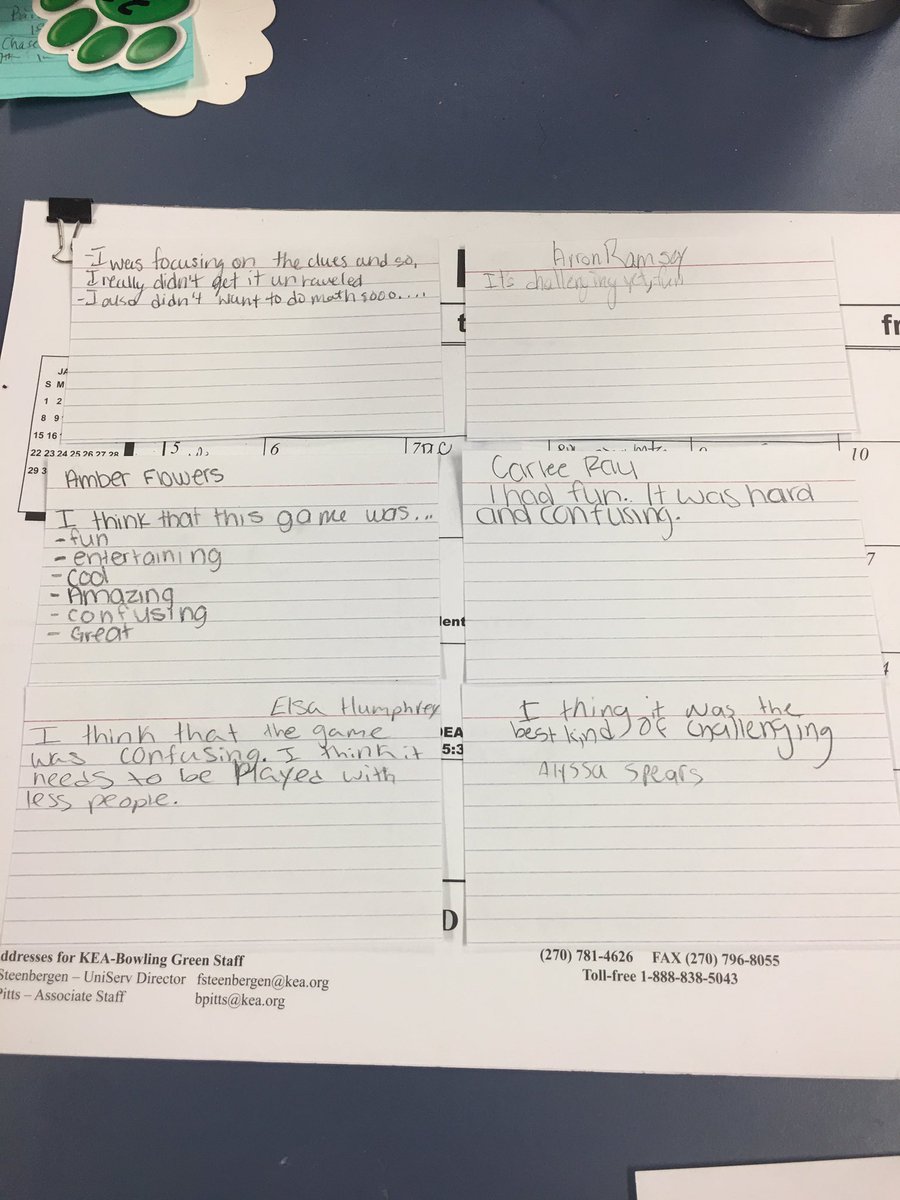 Chase
-I was focusing on the clues and so,
I really didn't get it unraveled
-I also didn't want to do math sooo....
Arron Ramsey
It's challenging yet, fun
t
fr
JA
S M
1 2
8 9
15 16
22 23 24 25 26 27 28
29 3
5
6
7
10
Amber Flowers
I think that this game was...
-fun
-entertaining
-Cool
-Amazing
-confusing
-Great
Carlee Ray
I had fun. It was hard
and confusing.
7
lent
Elsa Humphrey
I think that the game
was confusing. I think it
needs to be Played with
less people.
EA
5:3
I thing it was the
best kind of challenging
Alyssa Spears
D
ddresses for KEA-Bowling Green Staff
Steenbergen – UniServ Director fsteenbergen@kea.org
Pitts – Associate Staff bpitts@kea.org
(270) 781-4626 FAX (270) 796-8055
Toll-free 1-888-838-5043